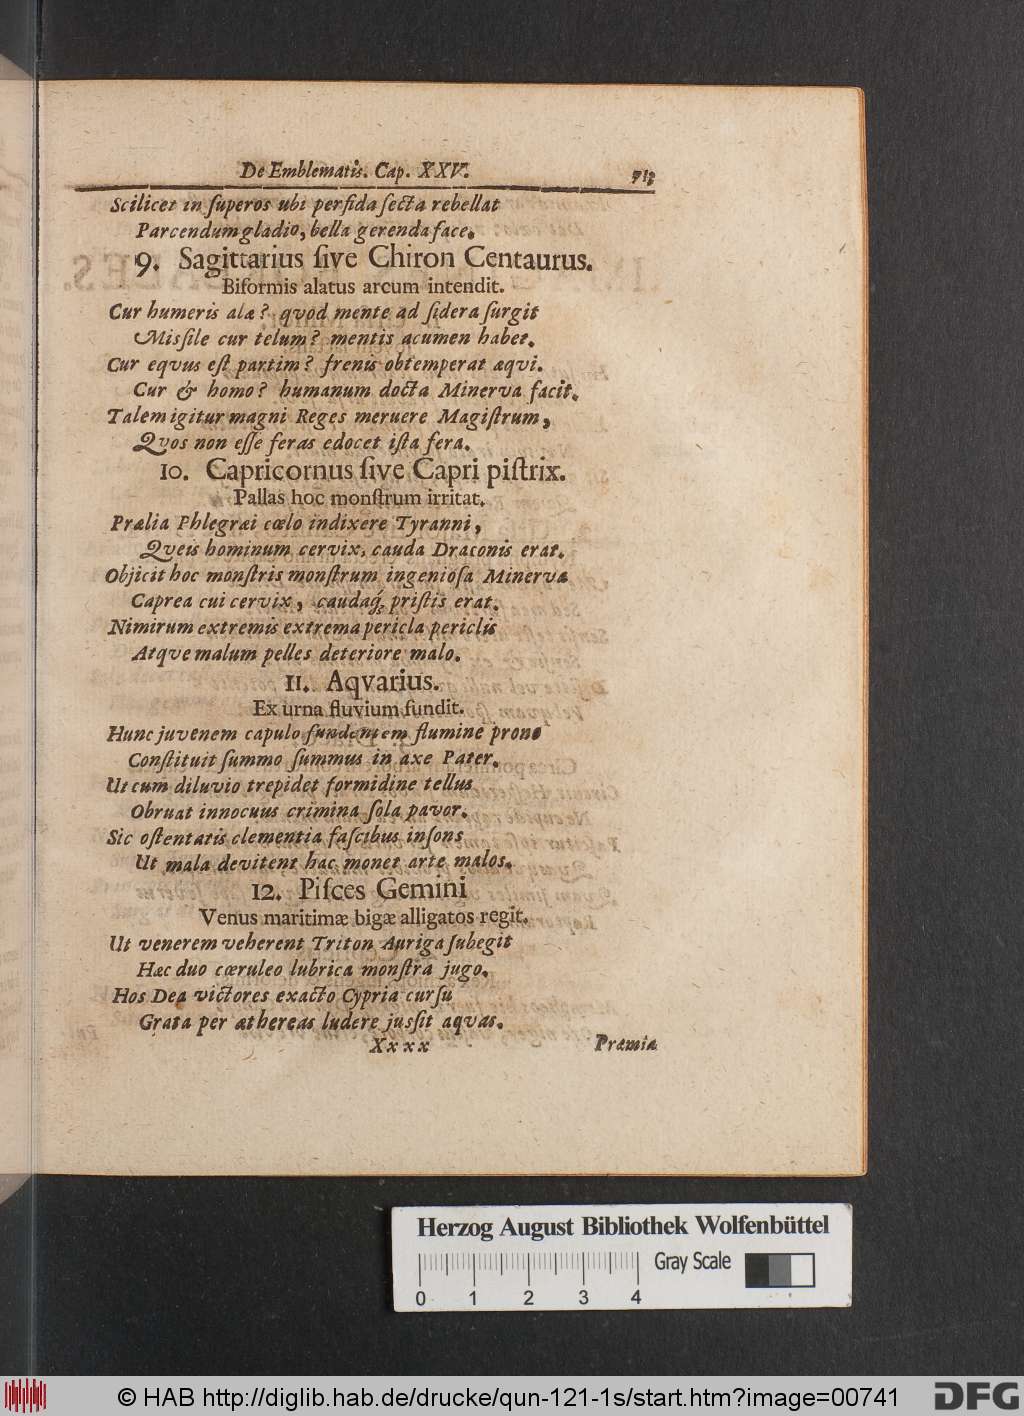 De Emblematis. Cap. XXV. 713
Scilicet in ſuperos ubi perfida ſecta rebellat
Parcendum gladio, bella gerenda face.
9. Sagittarius ſive Chiron Centaurus.
Biformis alatus arcum intendit.
Cur humeris alæ? qvod mente ad ſidera ſurgit
Miſſile cur telum? mentis acumen habet.
Cur eqvus eſt partim? frenis obtemperat æqvi.
Cur & homo? humanum docta Minerva facit.
Talem igitur magni Reges meruere Magiſtrum,
Qvos non eſſe feras edocet iſta fera.
10. Capricornus ſive Capri piſtrix.
Pallas hoc monſtrum irritat.
Prælia Phlegræi cœlo indixere Tyranni,
Qveis hominum cervix, cauda Draconis erat.
Objicit hoc monſtris monſtrum ingenioſa Minerva
Caprea cui cervix, caudaq́; priſtis erat.
Nimirum extremis extrema pericla periclis
Atqve malum pelles deteriore malo.
11. Aqvarius.
Ex urna fluvium fundit.
Hunc juvenem capulo fundentem flumine prono
Conſtituit ſummo ſummus in axe Pater.
Ut cum diluvio trepidet formidine tellus
Obruat innocuus crimina ſola pavor.
Sic oſtentatis clementia faſcibus inſons
Ut mala devitent hac monet arte malos.
12. Piſces Gemini
Venus maritimæ bigæ alligatos regit.
Ut venerem veherent Triton Auriga ſubegit
Hæc duo cœruleo lubrica monſtra jugo.
Hos Dea victores exacto Cypria curſu
Grata per æthereas ludere juſſit aqvas.
Xxxx Præmia
Herzog August Bibliothek Wolfenbüttel
Gray Scale
0 1 2 3 4
© HAB http://diglib.hab.de/drucke/qun-121-1s/start.htm?image=00741 DFG